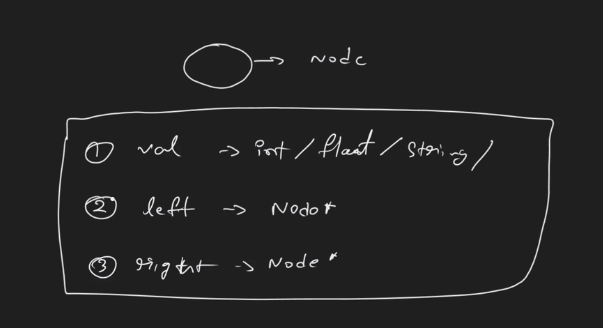 → Node
① val → int / float / string /
② left → Node*
③ right → Node*